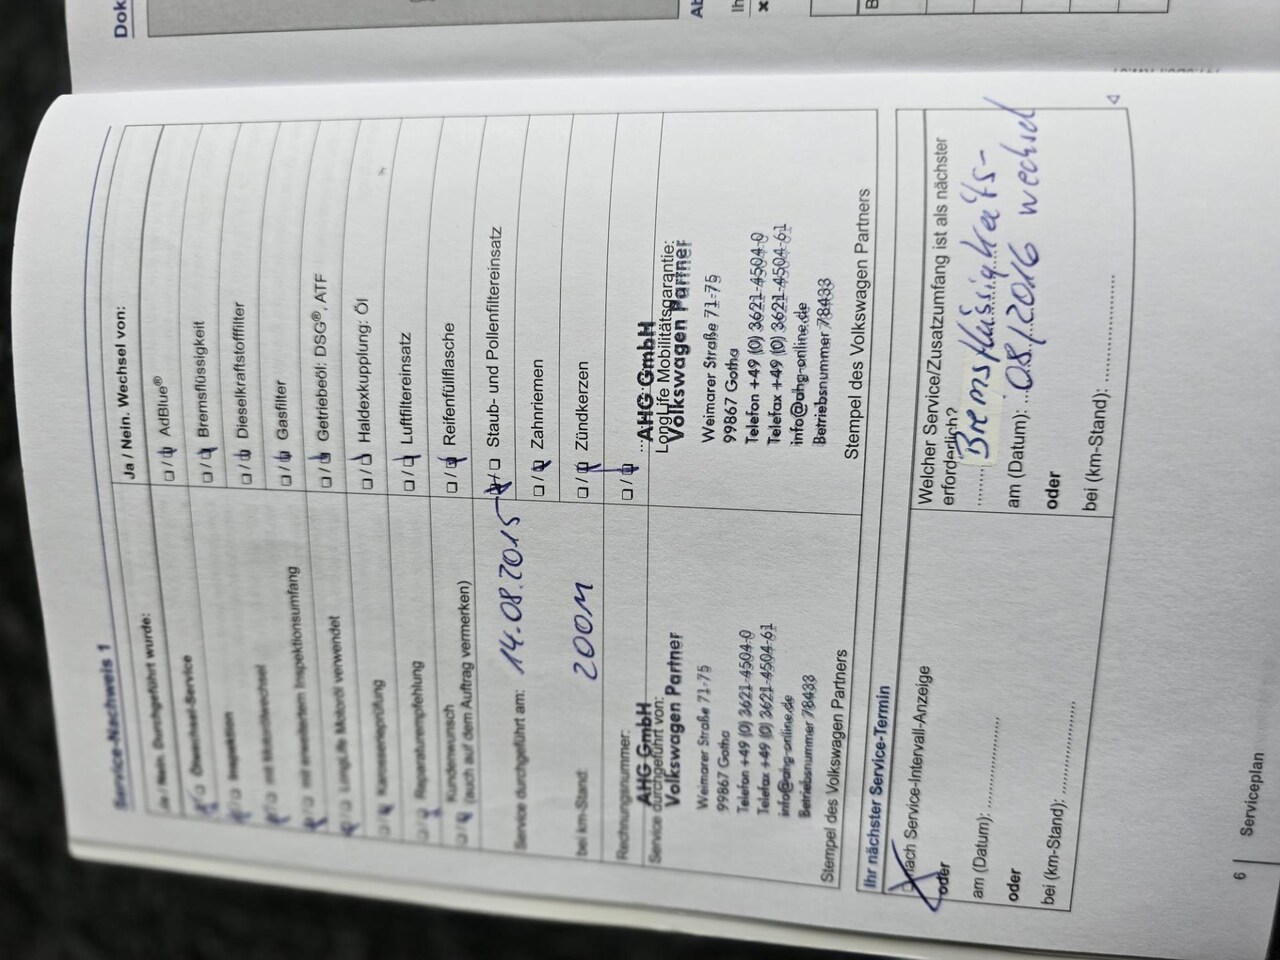 Dok
Service-Nachweis 1
Ja / Nein. Durchgeführt wurde:
Ölwechsel-Service
Inspektion
mit Motorölwechsel
mit erweitertem Inspektionsumfang
LongLife Motoröl verwendet
Karosserieprüfung
Reparaturempfehlung
Kundenwunsch
(auch auf dem Auftrag vermerken)
Service durchgeführt am: 14.08.2015
bei km-Stand:
Rechnungsnummer:
Service durchgeführt von:
AHG GmbH
Volkswagen Partner
Weimarer Straße 71-75
99867 Gotha
Telefon +49 (0) 3621-4504-0
Telefax +49 (0) 3621-4504-61
info@ahg-online.de
Betriebsnummer 78433
Stempel des Volkswagen Partners
Ja / Nein. Wechsel von:
AdBlue®
Bremsflüssigkeit
Dieselkraftstofffilter
Gasfilter
Getriebeöl: DSG®, ATF
Haldexkupplung: Öl
Luftfiltereinsatz
Reifenfüllflasche
Staub- und Pollenfiltereinsatz
Zahnriemen
Zündkerzen
LongLife Mobilitätsgarantie:
AHG GmbH
Volkswagen Partner
Weimarer Straße 71-75
99867 Gotha
Telefon +49 (0) 3621-4504-0
Telefax +49 (0) 3621-4504-61
info@ahg-online.de
Betriebsnummer 78433
Stempel des Volkswagen Partners
Ihr nächster Service-Termin
nach Service-Intervall-Anzeige
oder
am (Datum):
oder
bei (km-Stand):
Welcher Service/Zusatzumfang ist als nächster
erforderlich?
Bremsflüssigkeits-
am (Datum): 08/2016 wechsel
oder
bei (km-Stand):
6 | Serviceplan